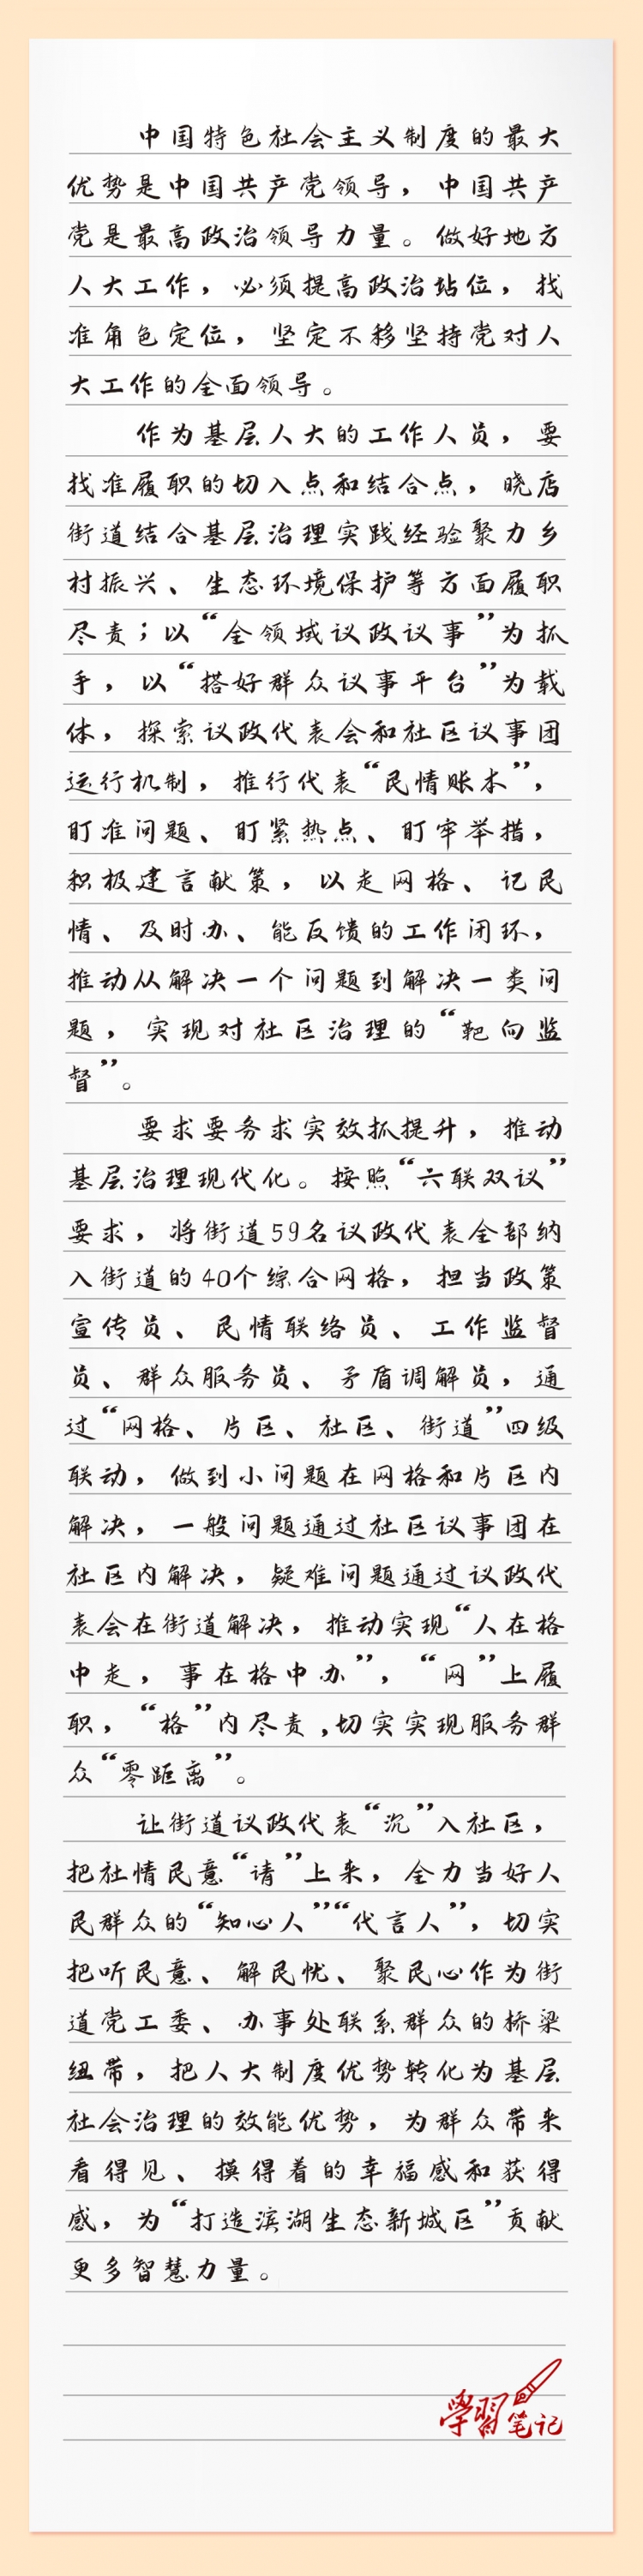 中国特色社会主义制度的最大
优势是中国共产党领导，中国共产
党是最高政治领导力量。做好地方
人大工作，必须提高政治站位，找
准角色定位，坚定不移坚持党对人
大工作的全面领导。
作为基层人大的工作人员，要
找准履职的切入点和结合点，晓店
街道结合基层治理实践经验聚力乡
村振兴、生态环境保护等方面履职
尽责；以“全领域议政议事”为抓
手，以“搭好群众议事平台”为载
体，探索议政代表会和社区议事团
运行机制，推行代表“民情账本”，
盯准问题、盯紧热点、盯牢举措，
积极建言献策，以走网格、记民
情、及时办、能反馈的工作闭环，
推动从解决一个问题到解决一类问
题，实现对社区治理的“靶向监
督”。
要求要务求实效抓提升，推动
基层治理现代化。按照“六联双议”
要求，将街道59名议政代表全部纳
入街道的40个综合网格，担当政策
宣传员、民情联络员、工作监督
员、群众服务员、矛盾调解员，通
过“网格、片区、社区、街道”四级
联动，做到小问题在网格和片区内
解决，一般问题通过社区议事团在
社区内解决，疑难问题通过议政代
表会在街道解决，推动实现“人在格
中走，事在格中办”，“网”上履
职，“格”内尽责,切实实现服务群
众“零距离”。
让街道议政代表“沉”入社区，
把社情民意“请”上来，全力当好人
民群众的“知心人”“代言人”，切实
把听民意、解民忧、聚民心作为街
道党工委、办事处联系群众的桥梁
纽带，把人大制度优势转化为基层
社会治理的效能优势，为群众带来
看得见、摸得着的幸福感和获得
感，为“打造滨湖生态新城区”贡献
更多智慧力量。
學習笔记